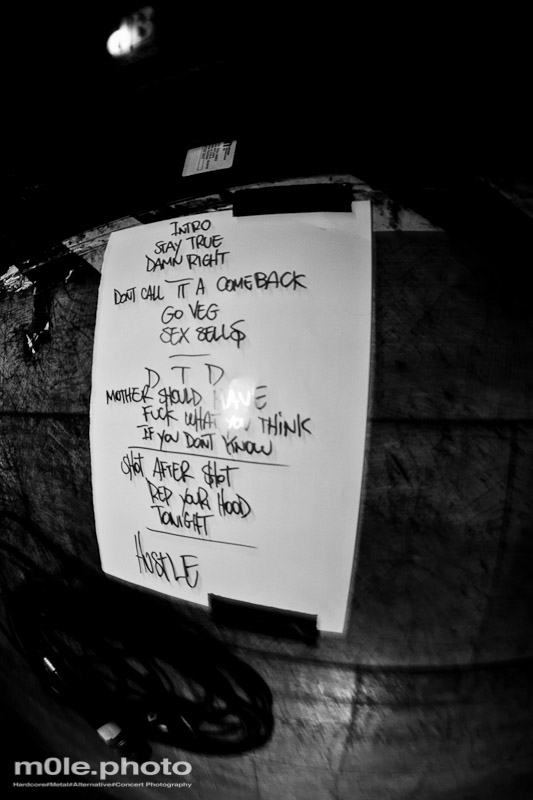 INTRO
STAY TRUE
DAMN RIGHT
DONT CALL IT A COMEBACK
GO VEG
SEX SELL$
D T D
MOTHER SHOULD HAVE
FUCK WHAT YOU THINK
IF YOU DONT KNOW
$HOT AFTER $HOT
REP YOUR HOOD
TONIGHT
HOSTILE
m0le.photo
Hardcore#Metal#Alternative#Concert Photography